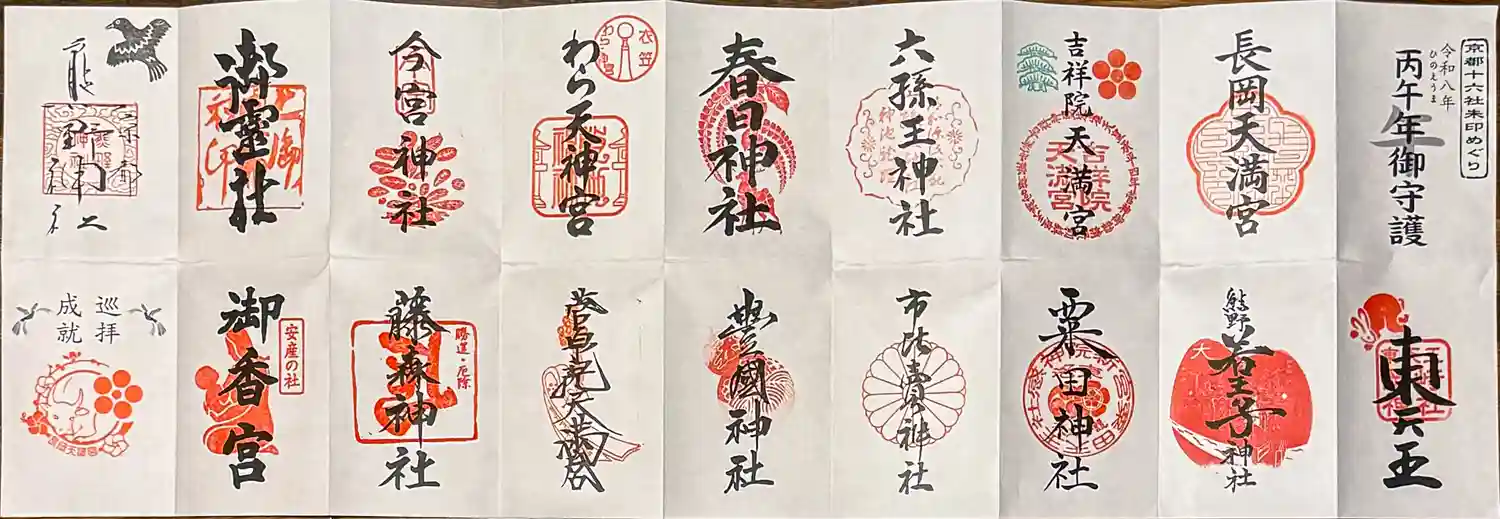 京都十六社朱印めぐり
令和八年
ひのえうま
丙午年御守護
長岡天満宮
吉祥院天満宮
吉祥院
天満宮
六孫王神社
春日神社
わら天神宮
衣笠
わら天神宮
今宮神社
御靈社
上御
熊野神社
東天王
熊野若王子神社
大
粟田神社
市比賣神社
豐國神社
菅原院天満宮
藤森神社
勝運・厄除
御香宮
安産の社
巡拝
成就